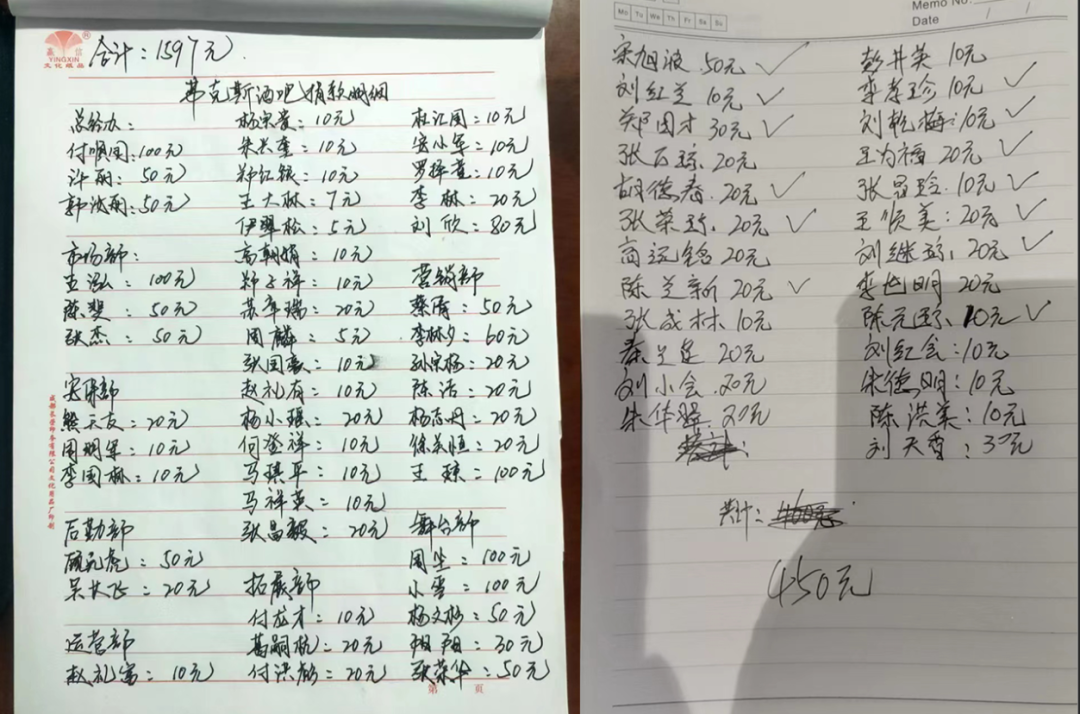 嘉信
YINGXIN
文化纸品
合计：1597元
弗克斯酒吧捐款明细
总经办：
付顺国：100元
许丽：50元
郭法丽：50元
市场部：
王泓：100元
陈斐：50元
张杰：50元
安保部
熊天友：20元
周明军：10元
李国林：10元
后勤部
顾元虎：50元
吴共飞：20元
运营部
赵礼富：10元
杨忠爱：10元
朱关奎：10元
郑红银：10元
王大林：7元
伊翠松：5元
高朝娟：10元
郑子祥：10元
苏辛瑞：20元
周麟：5元
张国豪：10元
赵礼有：10元
杨小琪：20元
何登祥：10元
马琪平：10元
马祥英：10元
张昌毅：20元
拓展部
付龙才：10元
葛嗣杭：20元
付洪彪：20元
杜江国：10元
安小军：10元
罗择萱：10元
李林：20元
刘欣：80元
营销部
蔡盾：50元
李林夕：60元
孙宗杨：20元
陈洁：20元
杨志丹：20元
徐美恒：20元
王琼：100元
舞台部
周生：100元
小雪：100元
杨文彬：50元
阳阳：30元
张荣华：50元
第 页
Mo Tu We Th Fr Sa Su
Memo No.
Date / /
宋旭波 50元 ✓
刘红兰 10元 ✓
郑国才 30元 ✓
张万琼 20元
胡德春 20元 ✓
张荣珍 20元 ✓
高远铭 20元
陈兰新 20元 ✓
张成林 10元
秦兰足 20元
刘小会 20元
朱华翠 20元
彭井英 10元
李孝珍 10元 ✓
刘乾梅：10元 ✓
王为福 20元 ✓
张昌玲 10元 ✓
王顺美：20元 ✓
刘继琼 20元 ✓
李世明 20元
陈元琼 10元 ✓
刘红会：10元
朱德明：10元
陈洪美：10元
刘天香：30元
共计：
450元